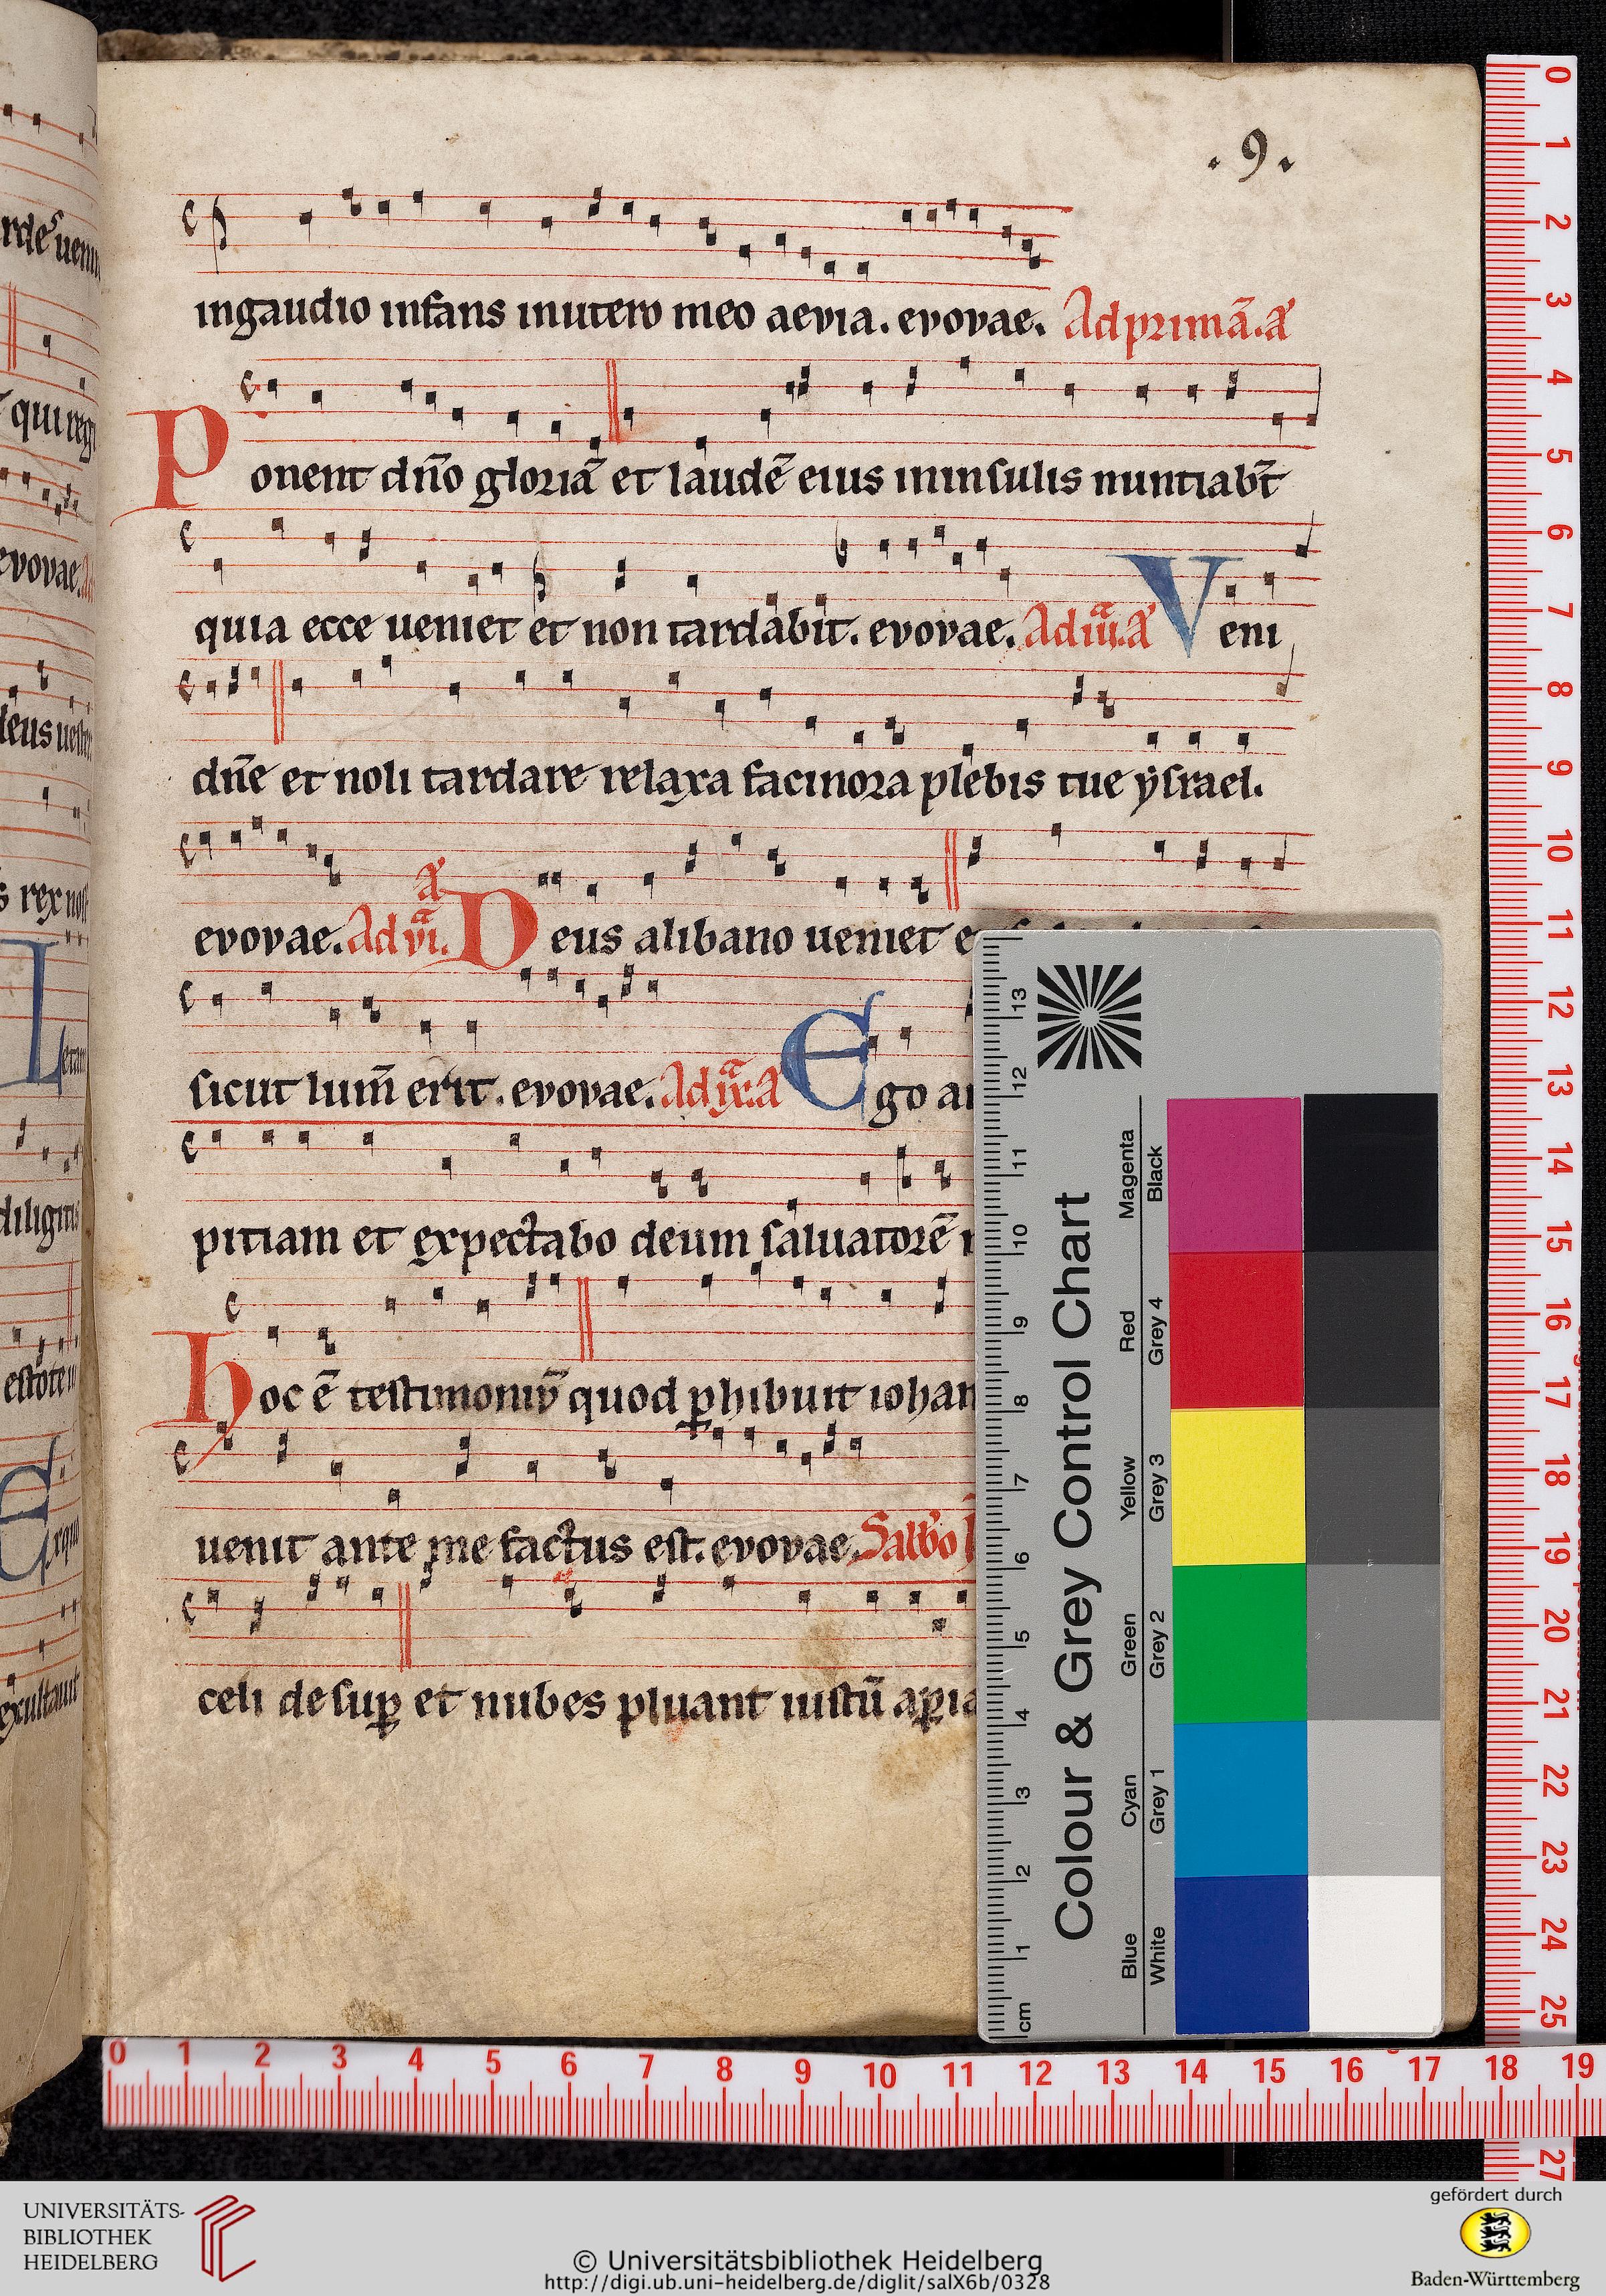 . 9 .
in gaudio infans in utero meo aevia. evovae. Ad primā. a
Ponent dn̄o gloriā et laudē eius in insulis nuntiab̄t
quia ecce ueniet et non tardabit. evovae. Ad iii. a Veni
dn̄e et noli tardare relaxa facinora plebis tue ẏsrael.
evovae. Ad vi. a Deus a libano ueniet e
sicut lum̄ erit. evovae. Ad ix. a Ego a
pitiam et expectabo deum saluatorē
hoc ē testimoniū quod ꝑhibuit iohan
uenit ante me factus est. evovae. Sabb̄o
celi desuꝑ et nubes pluant iustū aꝑia
rdes uenı
qui regn
evovae.
deus uest
s rex nost
Letam
diligitis
estote
Ex quo
exultauit
Colour & Grey Control Chart
Magenta Red Yellow Green Cyan Blue
Black Grey 4 Grey 3 Grey 2 Grey 1 White
cm 1 2 3 4 5 6 7 8 9 10 11 12 13
0 1 2 3 4 5 6 7 8 9 10 11 12 13 14 15 16 17 18 19 20 21 22 23 24 25 27
0 1 2 3 4 5 6 7 8 9 10 11 12 13 14 15 16 17 18 19
UNIVERSITÄTS-
BIBLIOTHEK
HEIDELBERG
© Universitätsbibliothek Heidelberg
http://digi.ub.uni-heidelberg.de/diglit/salX6b/0328
gefördert durch
Baden-Württemberg